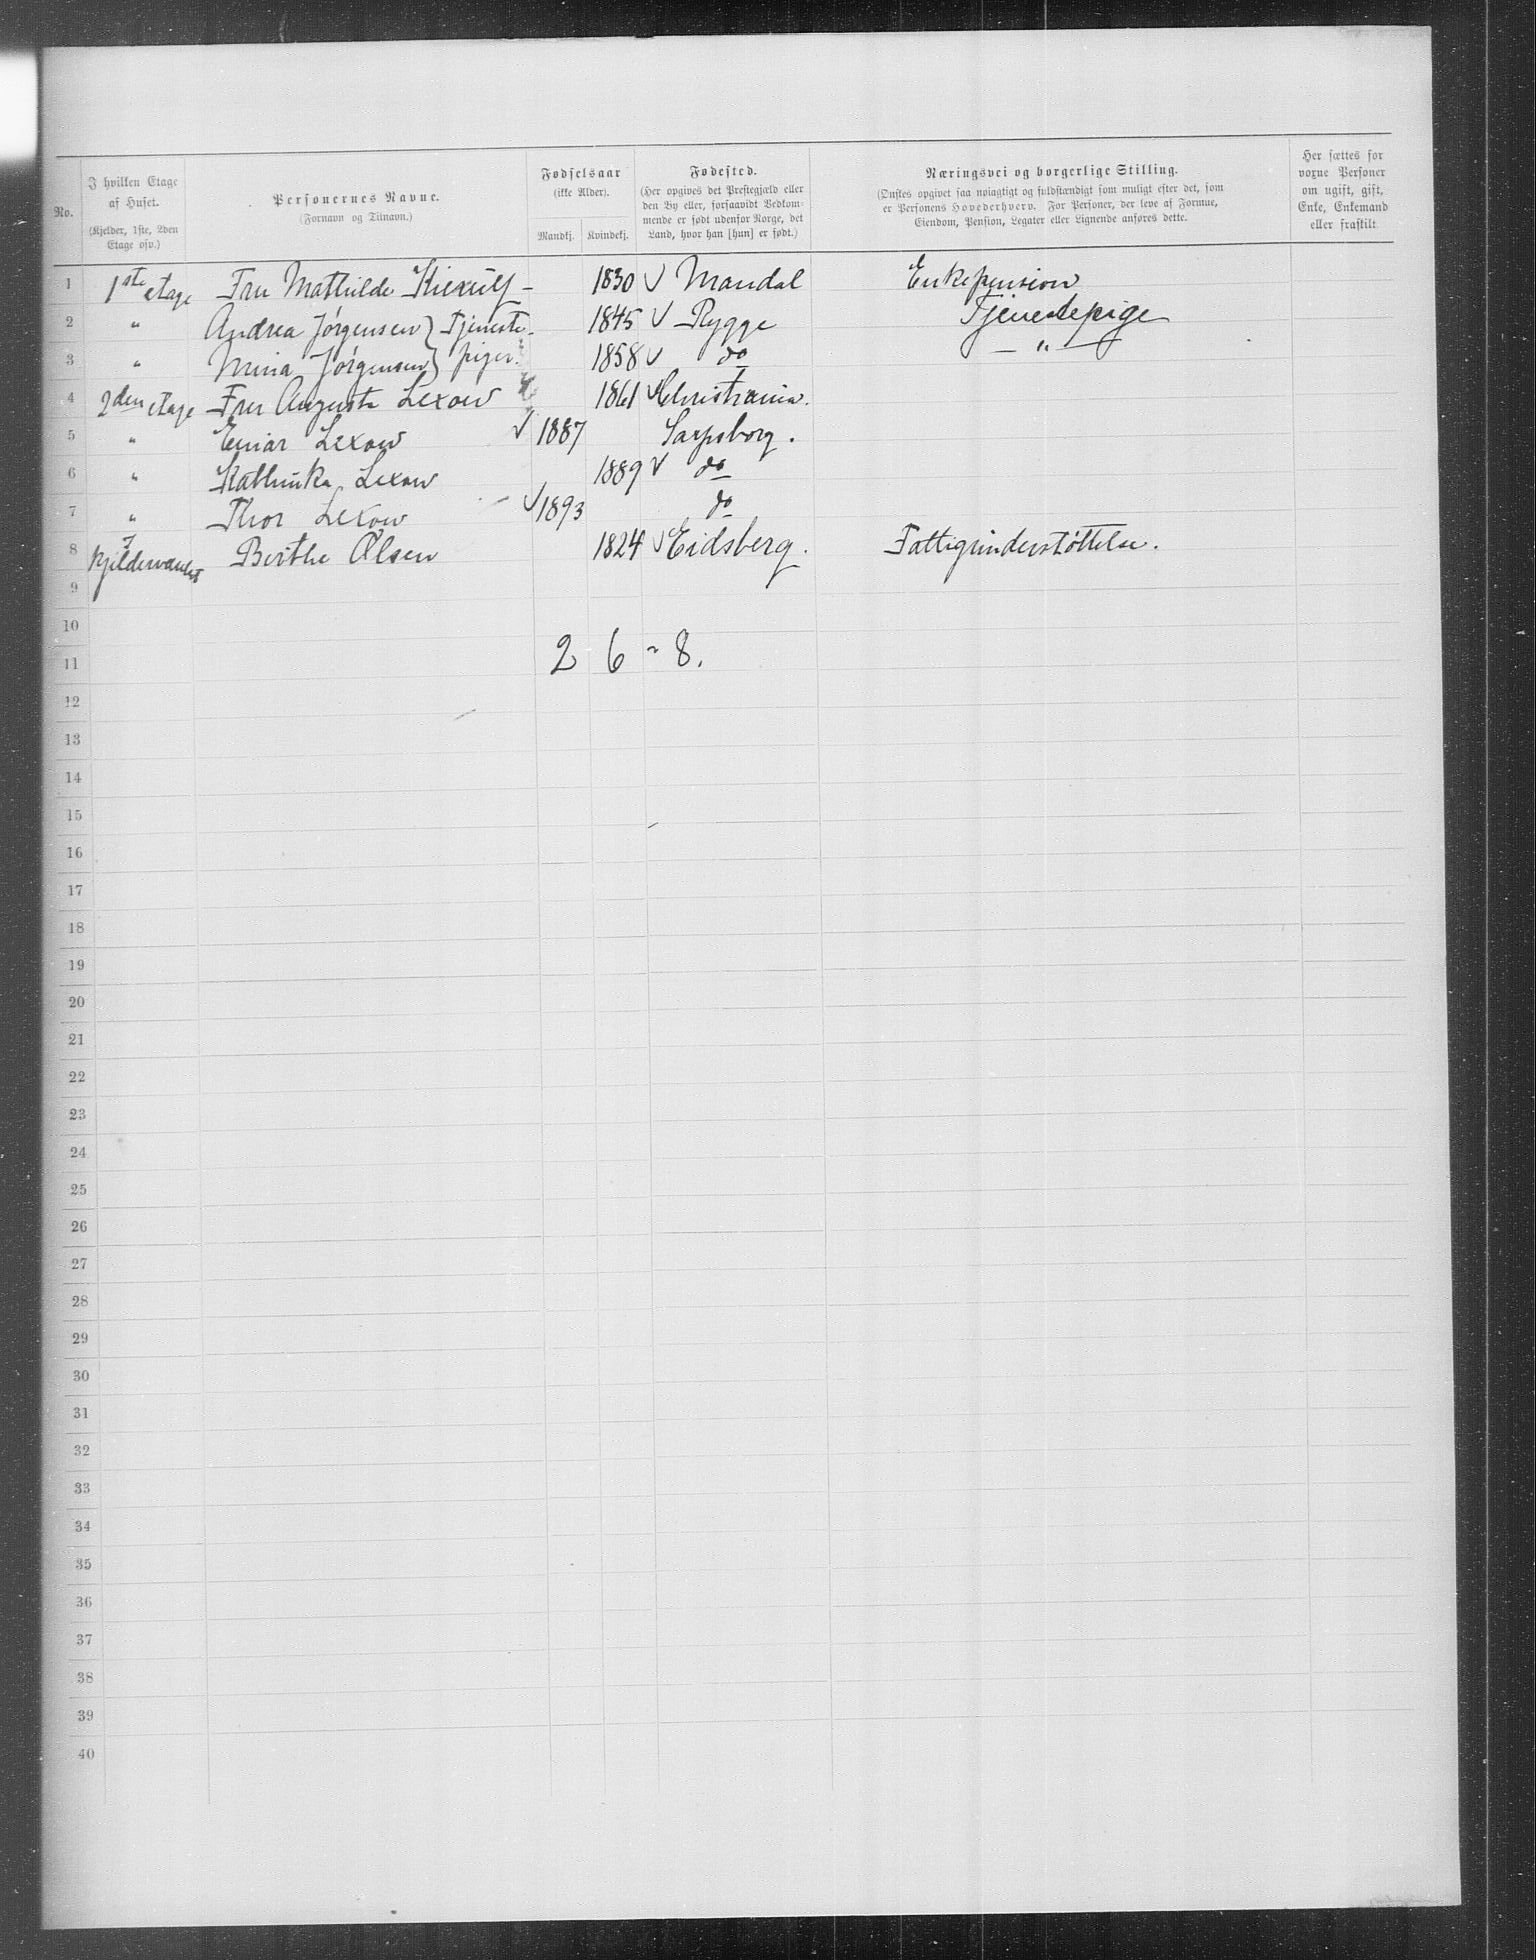 No.
I hvilken Etage af Huset.
(Kjelder, 1ste, 2den Etage osv.)
Personernes Navne.
(Fornavn og Tilnavn.)
Fødselsaar
(ikke Alder).
Mandkj. Kvindekj.
Fødested.
(Her opgives det Præstegjæld eller
den By eller, forsaavidt Vedkom-
mende er født udenfor Norge, det
Land, hvor han [hun] er født.)
Næringsvei og borgerlige Stilling.
(Ønskes opgivet saa nøiagtigt og fuldstændigt som muligt efter det, som
er Personens Hovederhverv. For Personer, der leve af Formue,
Eiendom, Pension, Legater eller Lignende anføres dette.
Her sættes for
voxne Personer
om ugift, gift,
Enke, Enkemand
eller fraskilt
1 1ste etage Fru Mathilde Kierulf - 1830 √ Mandal Enkepension
2 " Andrea Jørgensen } Tjeneste- 1845 √ Rygge Tjenestepige
3 " Mina Jørgensen } piger. 1858 √ do — " —
4 2den etage Fru Augusta Lexow 1861 √ Christiania.
5 " Einar Lexow √ 1887 Sarpsborg.
6 " Kathinka Lexow 1889 √ do
7 " Thor Lexow √ 1893 do
8 I Kjelder Berthe Olsen 1824 √ Eidsberg. Fattigunderstøttelse.
9
10
11 2 6 - 8.
12
13
14
15
16
17
18
19
20
21
22
23
24
25
26
27
28
29
30
31
32
33
34
35
36
37
38
39
40